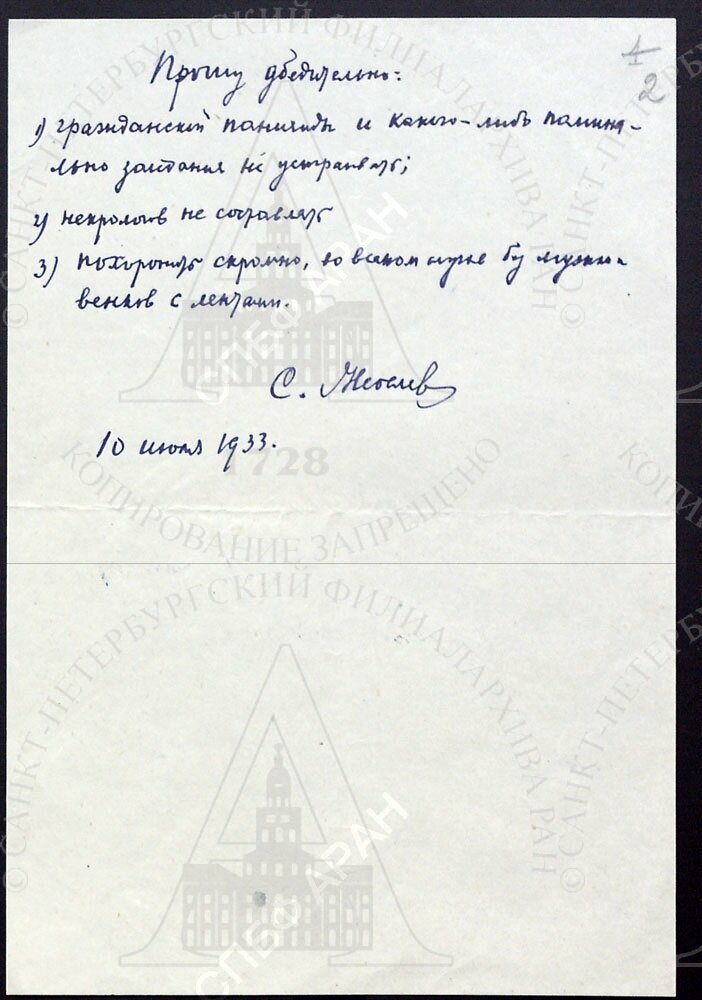 1
2
Прошу убедительно:
1) гражданской панихиды и какого-либо поминa-
льно заседания не устраивать;
2) некрологов не составлять
3) похоронить скромно, во всяком случае без музыки и
венков с лентами.
С. Жебелев
10 июля 1933.
© САНКТ-ПЕТЕРБУРГСКИЙ ФИЛИАЛ АРХИВА РАН
СПБФ АРАН
1728
КОПИРОВАНИЕ ЗАПРЕЩЕНО
© САНКТ-ПЕТЕРБУРГСКИЙ ФИЛИАЛ АРХИВА РАН
СПБФ АРАН